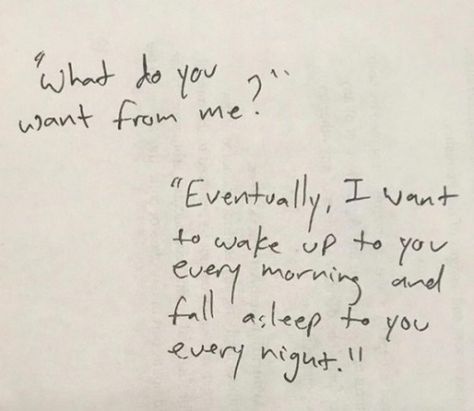 "What do you
want from me?"
"Eventually, I want
to wake up to you
every morning and
fall asleep to you
every night."